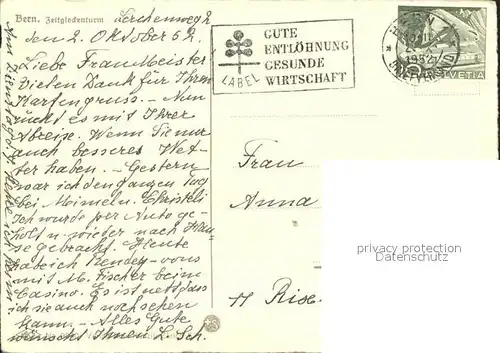 Bern. Zeitglockenturm
Lerchenweg 2
den 2. Oktober 52.
Liebe Frau Meister
Vielen Dank für Ihren
Kartengruss. - Nun
rückt es mit Ihrer
Abreise. Wenn Sie nur
auch besseres Wet-
ter haben. - Gestern
war ich den ganzen Tag
bei
Ich wurde per Auto ge-
holt u. wieder nach Hau-
se gebracht. Heute
habe ich Rendez-vous
mit M. Fischer beim
Casino. Es ist nett, dass
ich sie auch noch sehen
kann. - Alles Gute
wünscht Ihnen L. Sch.
LABEL
GUTE
ENTLÖHNUNG
GESUNDE
WIRTSCHAFT
BERN
1952
HELVETIA
Frau
Anna
privacy protection
Datenschutz